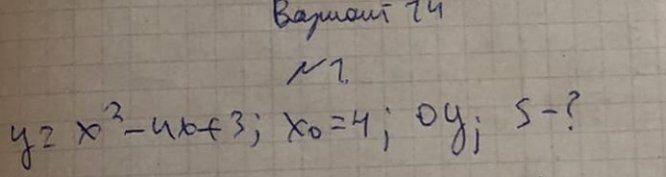 Вариант 14
№1.
y = x² - 4x + 3; x₀ = 4; Oy; S - ?